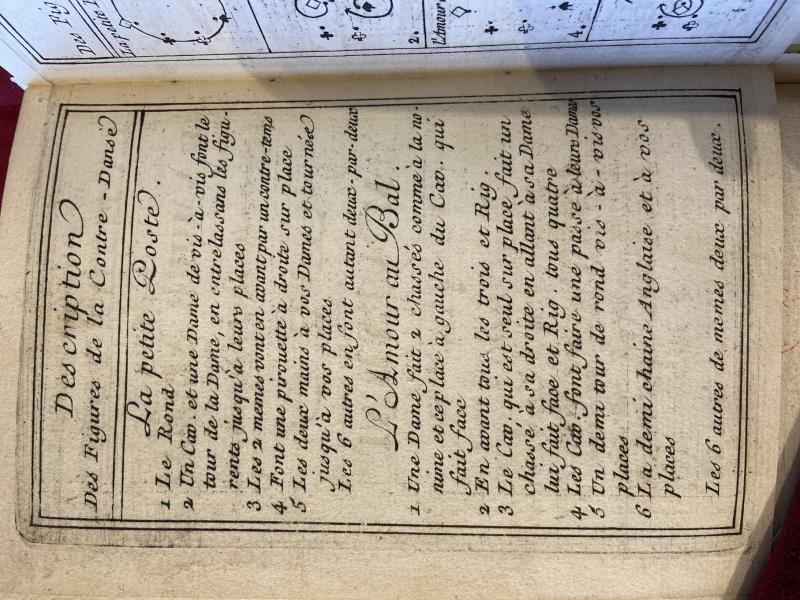 Description
Des Figures de la Contre-Danse
La petite Poste.
1 Le Rond
2 Un Cav. et une Dame de vis-à-vis font le
tour de la Dame, en entrelassans les figu-
rents jusqu'à leurs places
3 Les 2 memes vont en avant par un contre-tems
4 Font une pirouette à droite sur place
5 Les deux mains à vos Dames et tournée
jusqu'à vos places
Les 6 autres en font autant deux-par-deux
L'Amour au Bal.
1 Une Dame fait 2 chassés comme à la no-
nime et ce place à gauche du Cav. qui
fait face
2 En avant tous les trois et Rig.
3 Le Cav. qui est seul sur place fait un
chassé à sa droite en allant a sa Dame
lui fait face et Rig. tous quatre
4 Les Cav. font faire une passe à leurs Dames
5 Un demi tour de rond vis-à-vis vos
places
6 La demi chaine Anglaise et à vos
places
Les 6 autres de memes deux par deux.
La petite
2.
L'Amour
4.